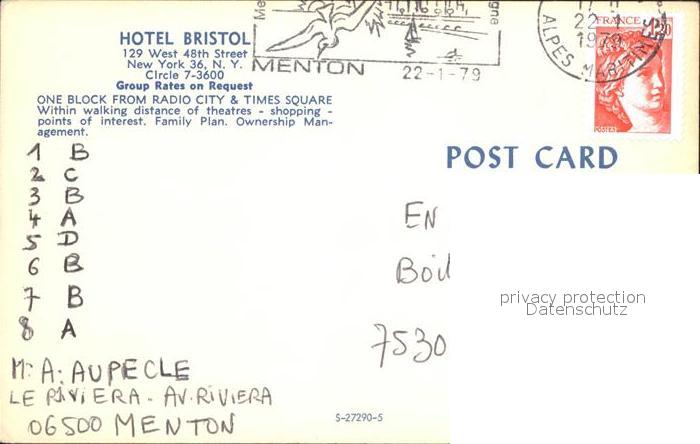 HOTEL BRISTOL
129 West 48th Street
New York 36, N. Y.
CIrcle 7-3600
Group Rates on Request
ONE BLOCK FROM RADIO CITY & TIMES SQUARE
Within walking distance of theatres - shopping -
points of interest. Family Plan. Ownership Man-
agement.
MENTON
22-1-79
22-1
1979
ALPES MARITIMES
FRANCE
POSTES
POST CARD
1 B
2 C
3 B
4 A
5 D
6 B
7 B
8 A
Mr A. AUPECLE
LE RIVIERA - AV. RIVIERA
06500 MENTON
EN
7530
privacy protection
Datenschutz
S-27290-5